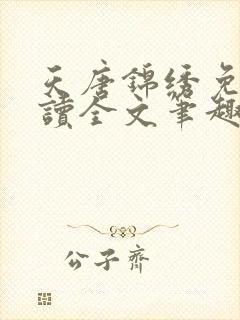 天唐錦绣免
讀全文筆趣
公子齊